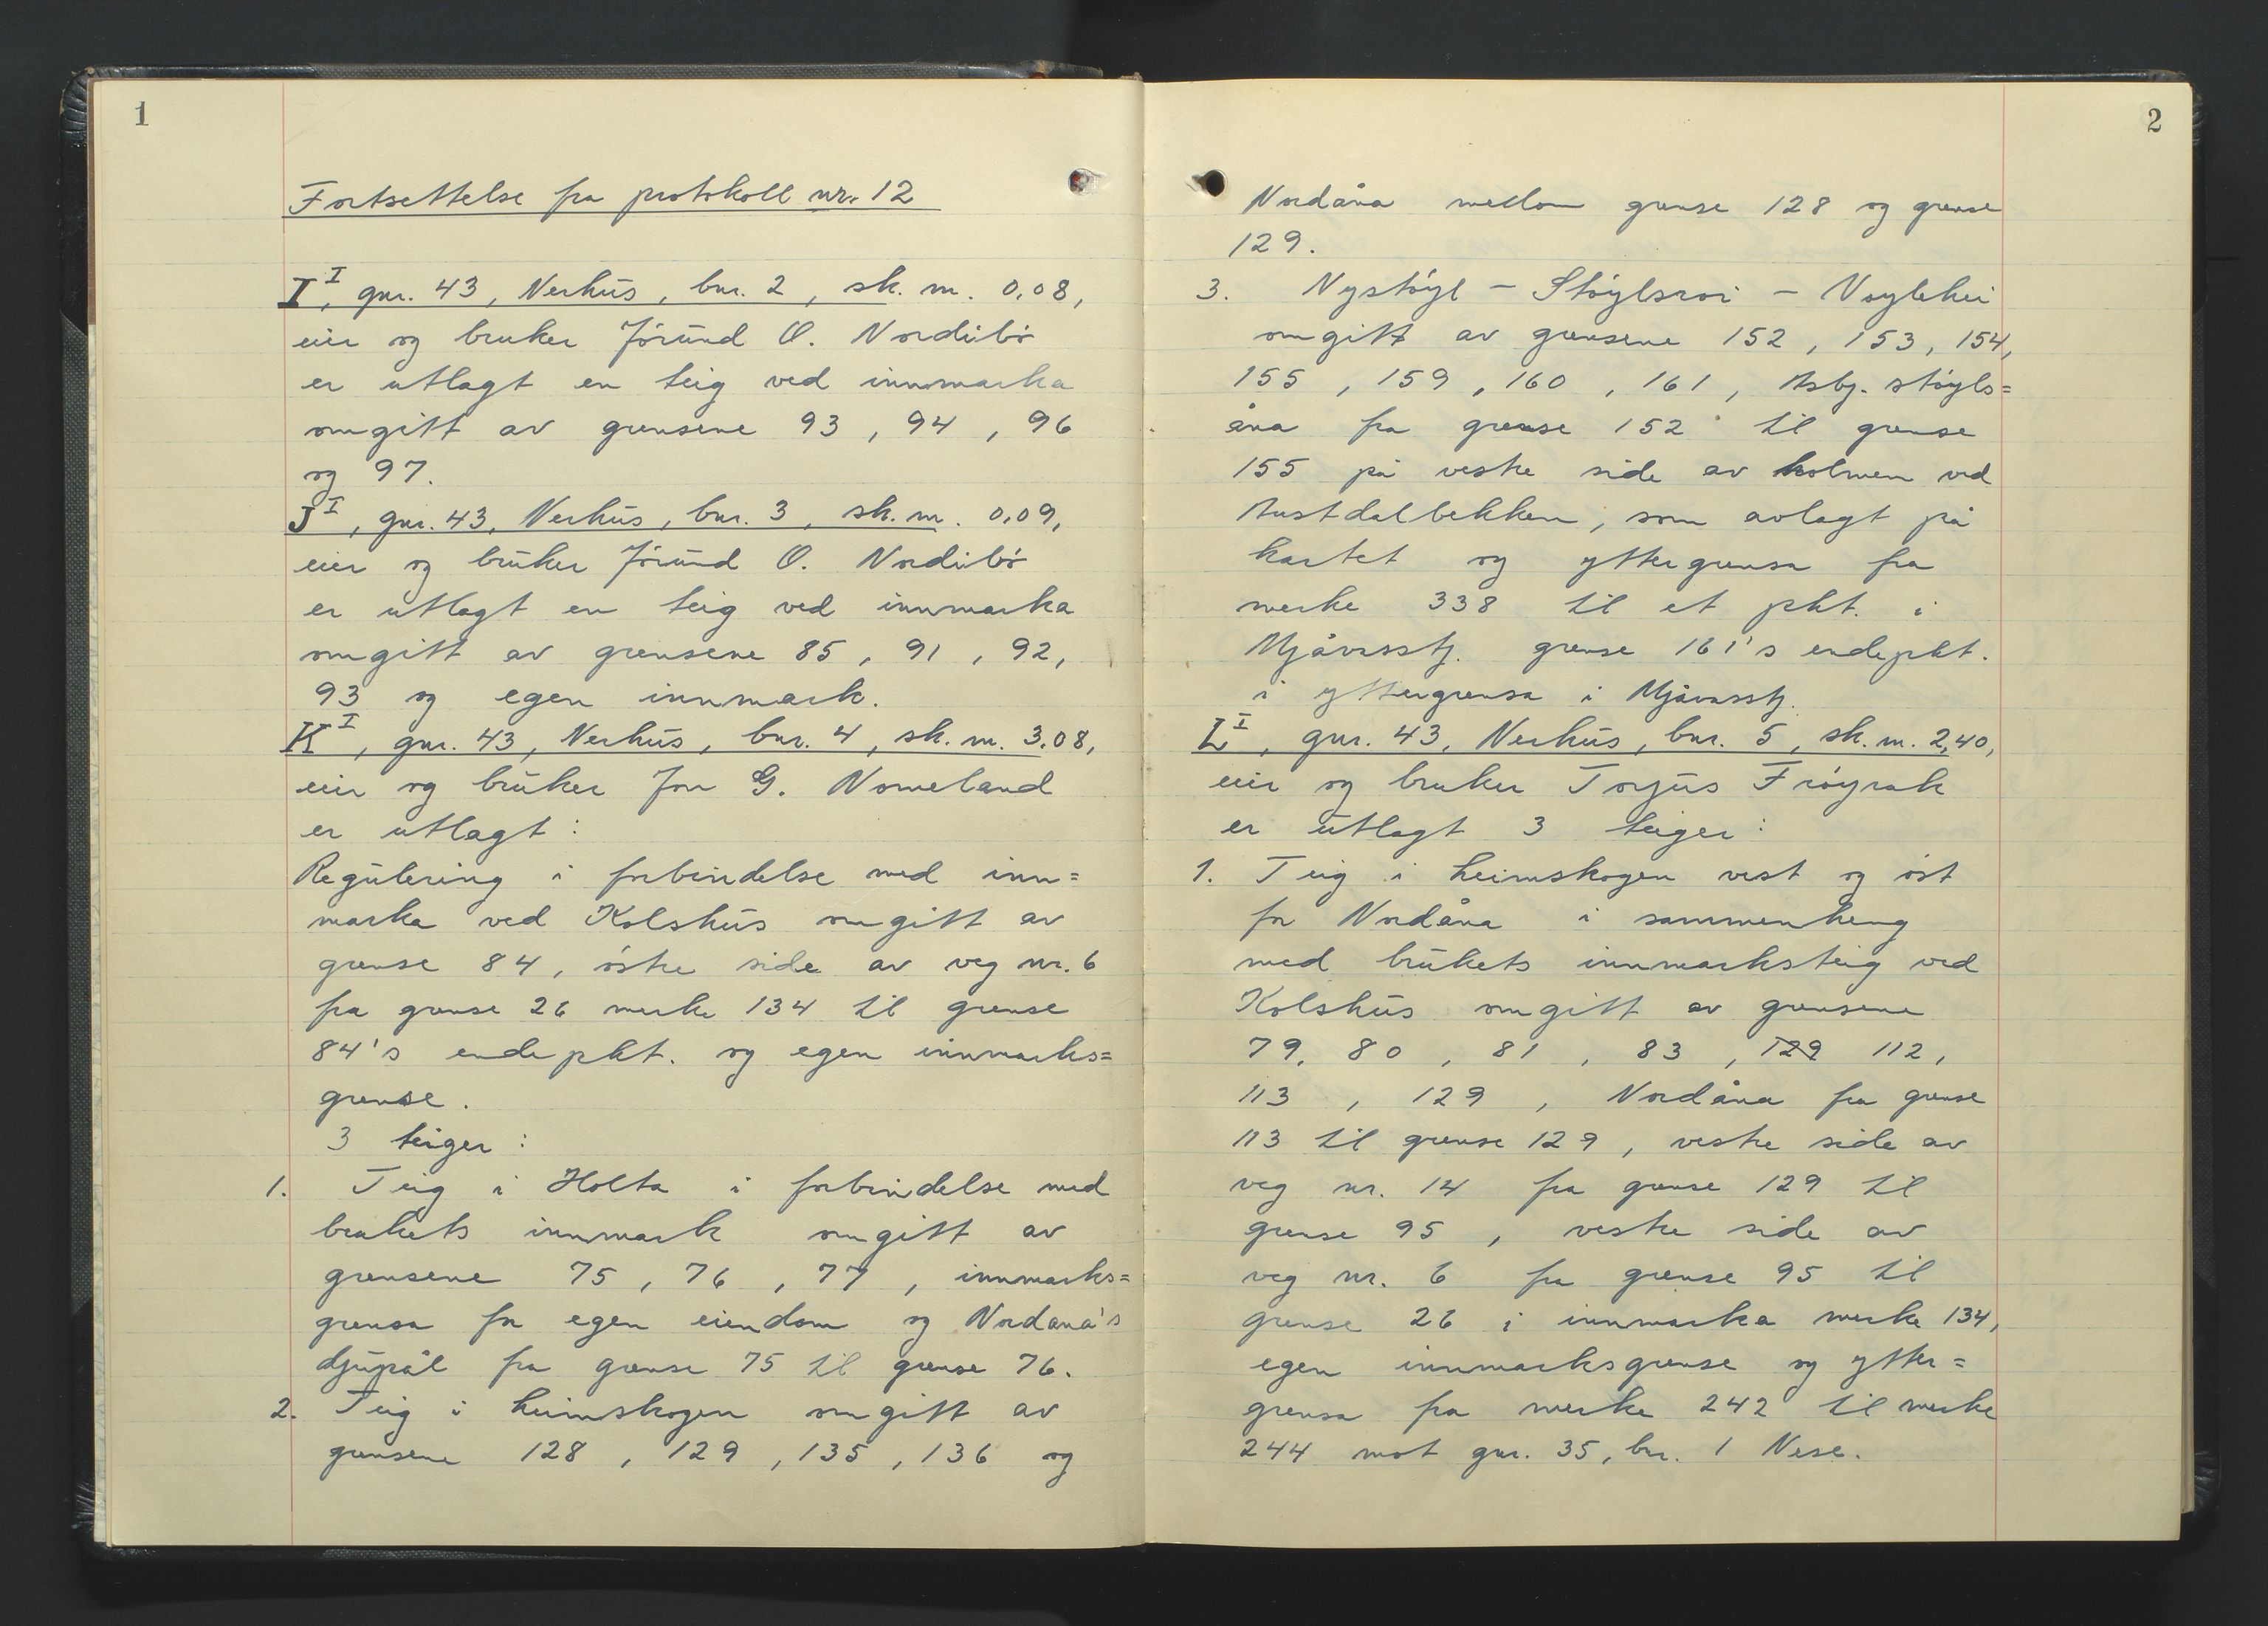 1
Fortsettelse fra protokoll nr. 12
I I, gnr. 43, Nerhus, bnr. 2, sk. m. 0,08,
eier og bruker Jørund O. Nordibø
er utlagt en teig ved innmarka
omgitt av grensene 93, 94, 96
og 97.
J I, gnr. 43, Nerhus, bnr. 3, sk. m. 0,09,
eier og bruker Jørund O. Nordibø
er utlagt en teig ved innmarka
omgitt av grensene 85, 91, 92,
93 og egen innmark.
K I, gnr. 43, Nerhus, bnr. 4, sk. m. 3,08,
eier og bruker Jon G. Nomeland
er utlagt:
Regulering i forbindelse med inn=
marka ved Kolshus omgitt av
grense 84, østre side av veg nr. 6
fra grense 26 merke 134 til grense
84's endepkt. og egen innmarks=
grense.
3 teiger:
1. Teig i Holta i forbindelse med
brukets innmark omgitt av
grensene 75, 76, 77, innmarks=
grensa for egen eiendom og Nordåna's
djupål fra grense 75 til grense 76.
2. Teig i heimskogen omgitt av
grensene 128, 129, 135, 136 og
2
Nordåna mellom grense 128 og grense
129.
3. Nystøyl - Støylsroi - Vøylehei
omgitt av grensene 152, 153, 154,
155, 159, 160, 161, Asbj. støyls=
åna fra grense 152 til grense
155 på vestre side av holmen ved
Austdalbekken, som avlagt på
kartet og yttergrensa fra
merke 338 til et pkt. i
Mjåvasstj. grense 161's endepkt.
i yttergrensa i Mjåvasstj.
L I, gnr. 43, Nerhus, bnr. 5, sk. m. 2,40,
eier og bruker Torjus Frøyrak
er utlagt 3 teiger:
1. Teig i heimskogen vest og øst
for Nordåna i sammenheng
med brukets innmarksteig ved
Kolshus omgitt av grensene
79, 80, 81, 83, 129 112,
113, 129, Nordåna fra grense
113 til grense 129, vestre side av
veg nr. 14 fra grense 129 til
grense 95, vestre side av
veg nr. 6 fra grense 95 til
grense 26 i innmarka merke 134,
egen innmarksgrense og ytter=
grensa fra merke 242 til merke
244 mot gnr. 35, bnr. 1 Nese.